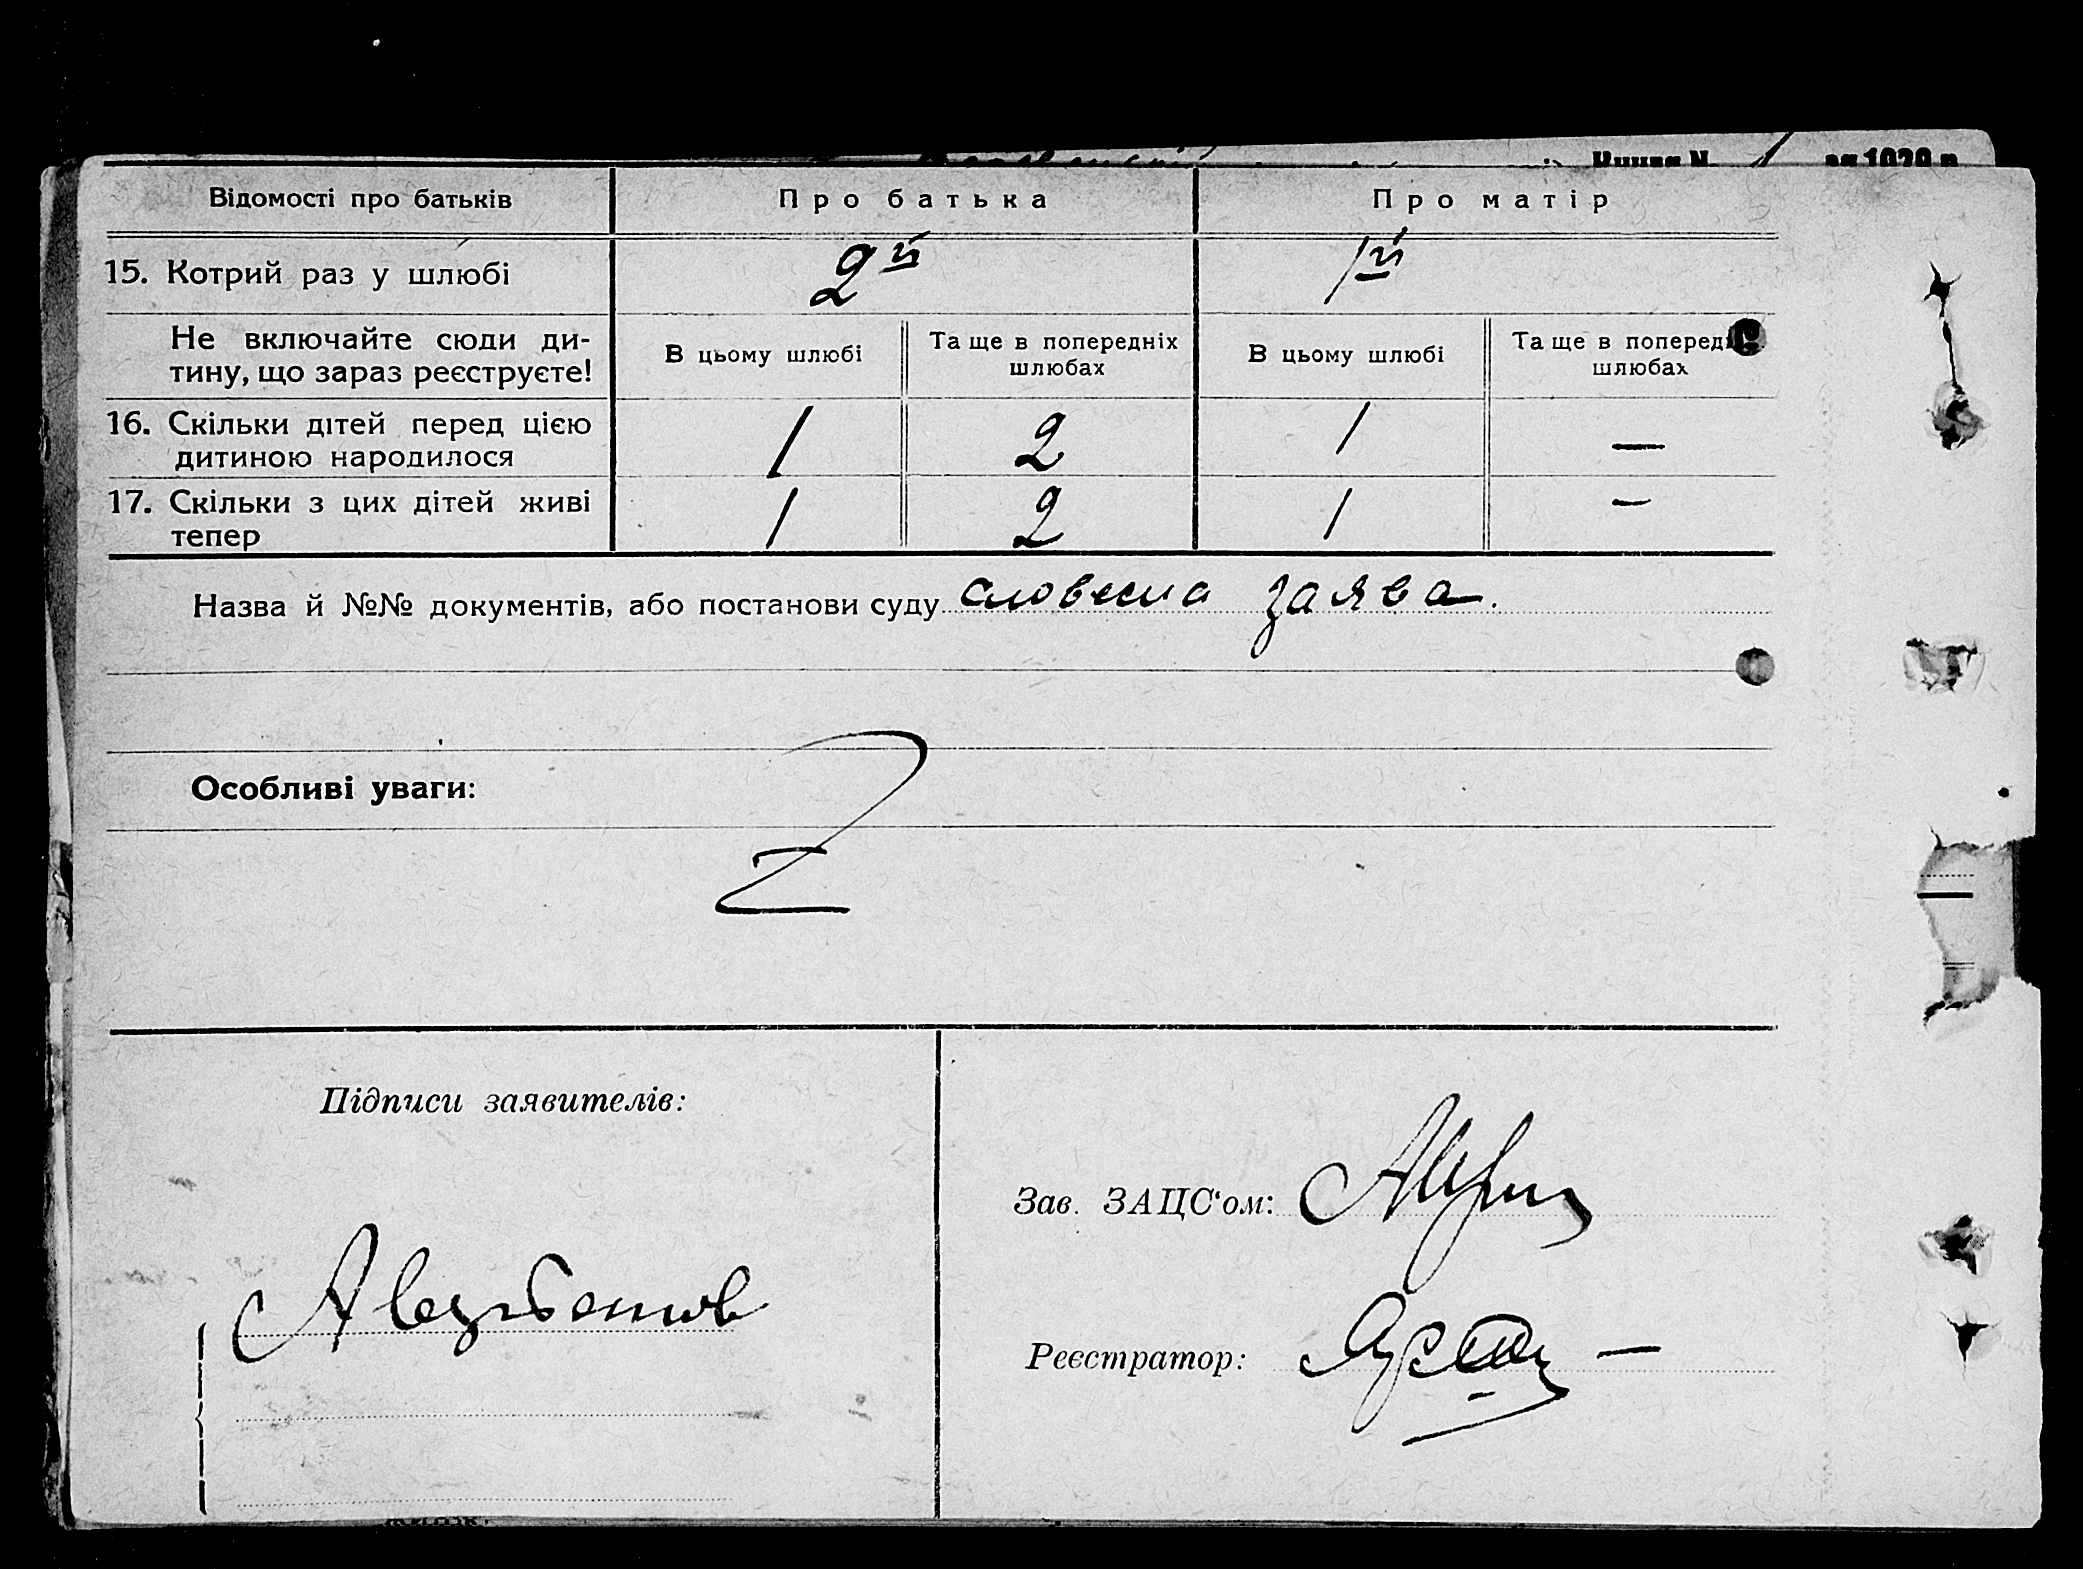 Відомості про батьків Про батька Про матір
15. Котрий раз у шлюбі 2й 1й
Не включайте сюди ди-
тину, що зараз реєструєте!
В цьому шлюбі
Та ще в попередніх
шлюбах
В цьому шлюбі
Та ще в
шлюбах
16. Скільки дітей перед цією
дитиною народилося
1 2 1 —
17. Скільки з цих дітей живі
тепер
1 2 1 —
Назва й №№ документів, або постанови суду словесна заява.
Особливі уваги:
Підписи заявителів:
Зав. ЗАЦС‘ом:
Реєстратор: